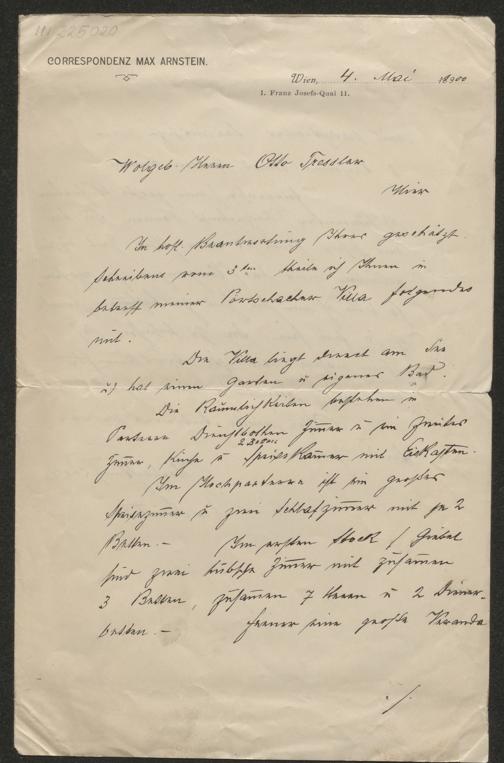 III 225020
CORRESPONDENZ MAX ARNSTEIN.
Wien, 4. Mai 1900
I. Franz Josefs-Quai 11.
Wolgeb. Herrn Otto Tressler
Hier
In höfl. Beantwortung Ihres geschätzt.
Schreibens vom 3ten theile ich Ihnen in
betreff meiner Pörtschacher Villa folgendes
mit.
Die Villa liegt direct am See
u hat einen Garten u eigenes Bad.
Die Räumlichkeiten bestehen in
Parterre Dienstboten Zimmer u ein zweites
2 Betten
Zimmer, Küche u Speiskammer mit Eiskasten.
Im Hochparterre ist ein großes
Speisezimmer u zwei Schlafzimmer mit je 2
Betten. –  Im ersten Stock / Giebel
sind zwei hübsche Zimmer mit zusammen
3 Betten, zusammen 7 Herrn u 2 Diener-
betten. –  Ferner eine große Veranda
./.